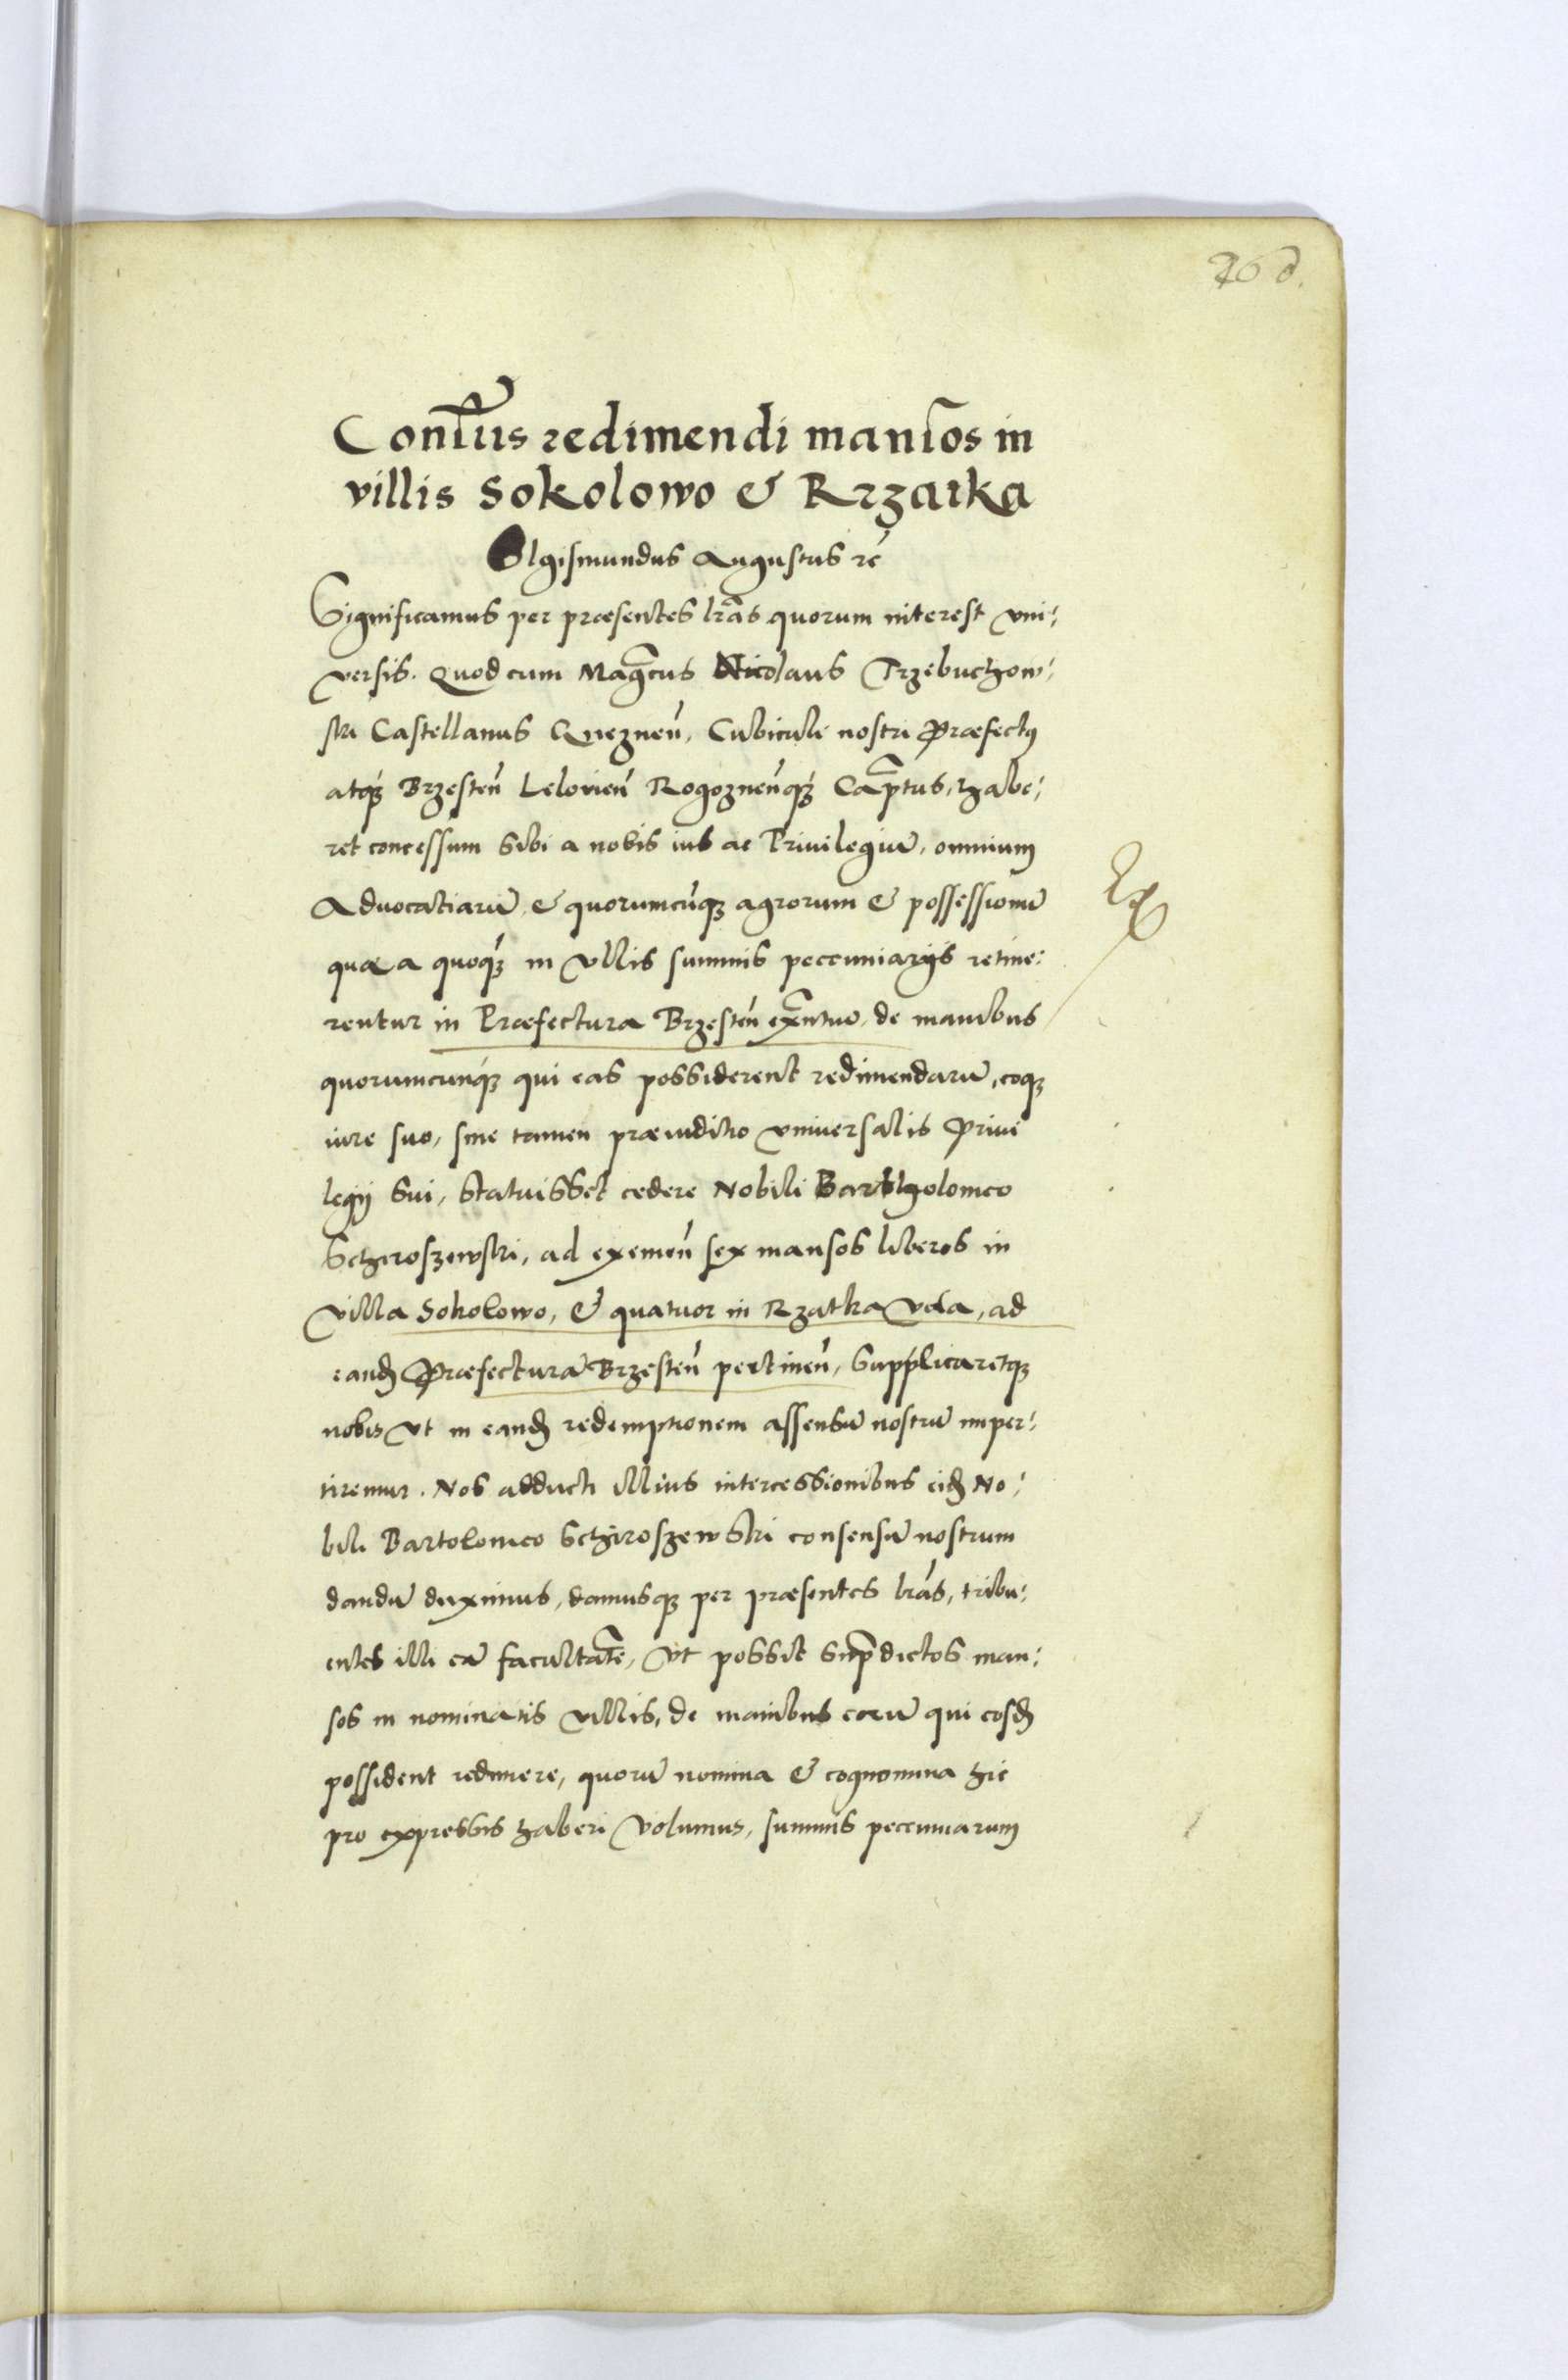 Consũs redimendi mansos in
villis Sokolowo & Rrzatka
SIgismundus Augustus rẽ
Significamus per præsentes lrãs quorum interest vni:
versis. Quod cum Magcus Nicolaus Trzebuchow:
ski Castellanus Gnezneñ, Cubiculi nostri Præfectus
atq; Brzesteñ Leloviеñ Rogozneñq; Captus, habe:
ret concessum sibi a nobis ius ac Privilegiũ, omnium
Advocatiarũ & quorumcũq; agrorum & possessionũ
quæ a quoq; in vllis summis peccuniarijs retine:
rentur in Præfectura Brzesteñ exñtiũ, de manibus
quorumcunq; qui eas possiderent redimendarũ, eoq;
iure suo, sine tamen præiuditio vniversalis Privi
legij sui, statuisset cedere Nobili Bartholomeo
Schiroszewski, ad exemeñ sex mansos liberos in
villa Sokolowo, & quatuor in Rzatka vela, ad
eandẽ Præfecturã Brzesteñ pertineñ, supplicaretq;
nobis vt in eandẽ redemptionem assensũ nostrũ imper:
tiremur. Nos adducti illius intercessionibus eidẽ No:
bili Bartolomeo Schiroszewski consensũ nostrum
dandũ duximus, damusq; per præsentes lrãs, tribu:
entes illi eã facultatẽ, vt possit suprãdictos man:
sos in nominatis villis, de manibus eorũ qui eosdẽ
possident redimere, quorũ nomina & cognomina hic
pro expressis haberi volumus, summis peccuniarum
Ex